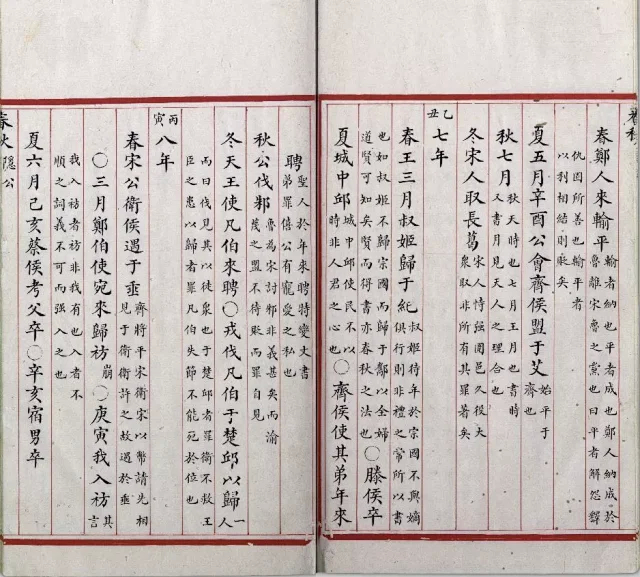 春秋
春鄭人來輸平輸者納也平者成也鄭人納成於
魯離宋魯之黨也曰平者解怨釋
仇因所善也輸平者
以利相結則貶矣
夏五月辛酉公會齊侯盟于艾始平于
齊也
秋七月秋天時也七月王月也書時
人書月見天人之理合也
冬宋人取長葛宋人恃强圍邑久役大
衆取非所有其罪著矣
乙丑七年
春王三月叔姬歸于紀叔姬待年於宗國不與嫡
俱行則非禮之常所以書
也如叔姬不歸宗國而歸于酅以全婦
道賢可知矣賢而得書亦春秋之法也○滕侯卒
夏城中邱城中邱使民不以
時非人君之心也○齊侯使其弟年來
聘聖人於年來聘特變文書
弟罪僖公有寵愛之私也
秋公伐邾魯為宋討邾非義甚矣而渝
蔑之盟不待貶而罪自見
冬天王使凡伯來聘○戎伐凡伯于楚邱以歸一
人
而曰伐見其以徒衆也于楚邱者罪衛不救王
臣之患以歸者罪凡伯失節不能死於位也
丙寅八年
春宋公衛侯遇于垂齊將平宋衛宋以幣請先相
見于衛衛許之故遇於垂
○三月鄭伯使宛來歸祊崩○庚寅我入祊其
言
我入祊者祊非我有也入者不
順之詞義不可而强入之也
夏六月己亥蔡侯考父卒○辛亥宿男卒
春秋隱公